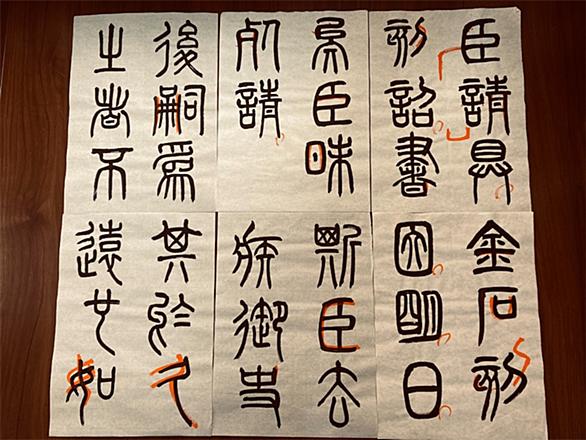 臣請具
刻詔書
金石刻
因明白
矣臣昧
死請
斯臣去
疾御史
後嗣為
之者不
其於久
遠也如